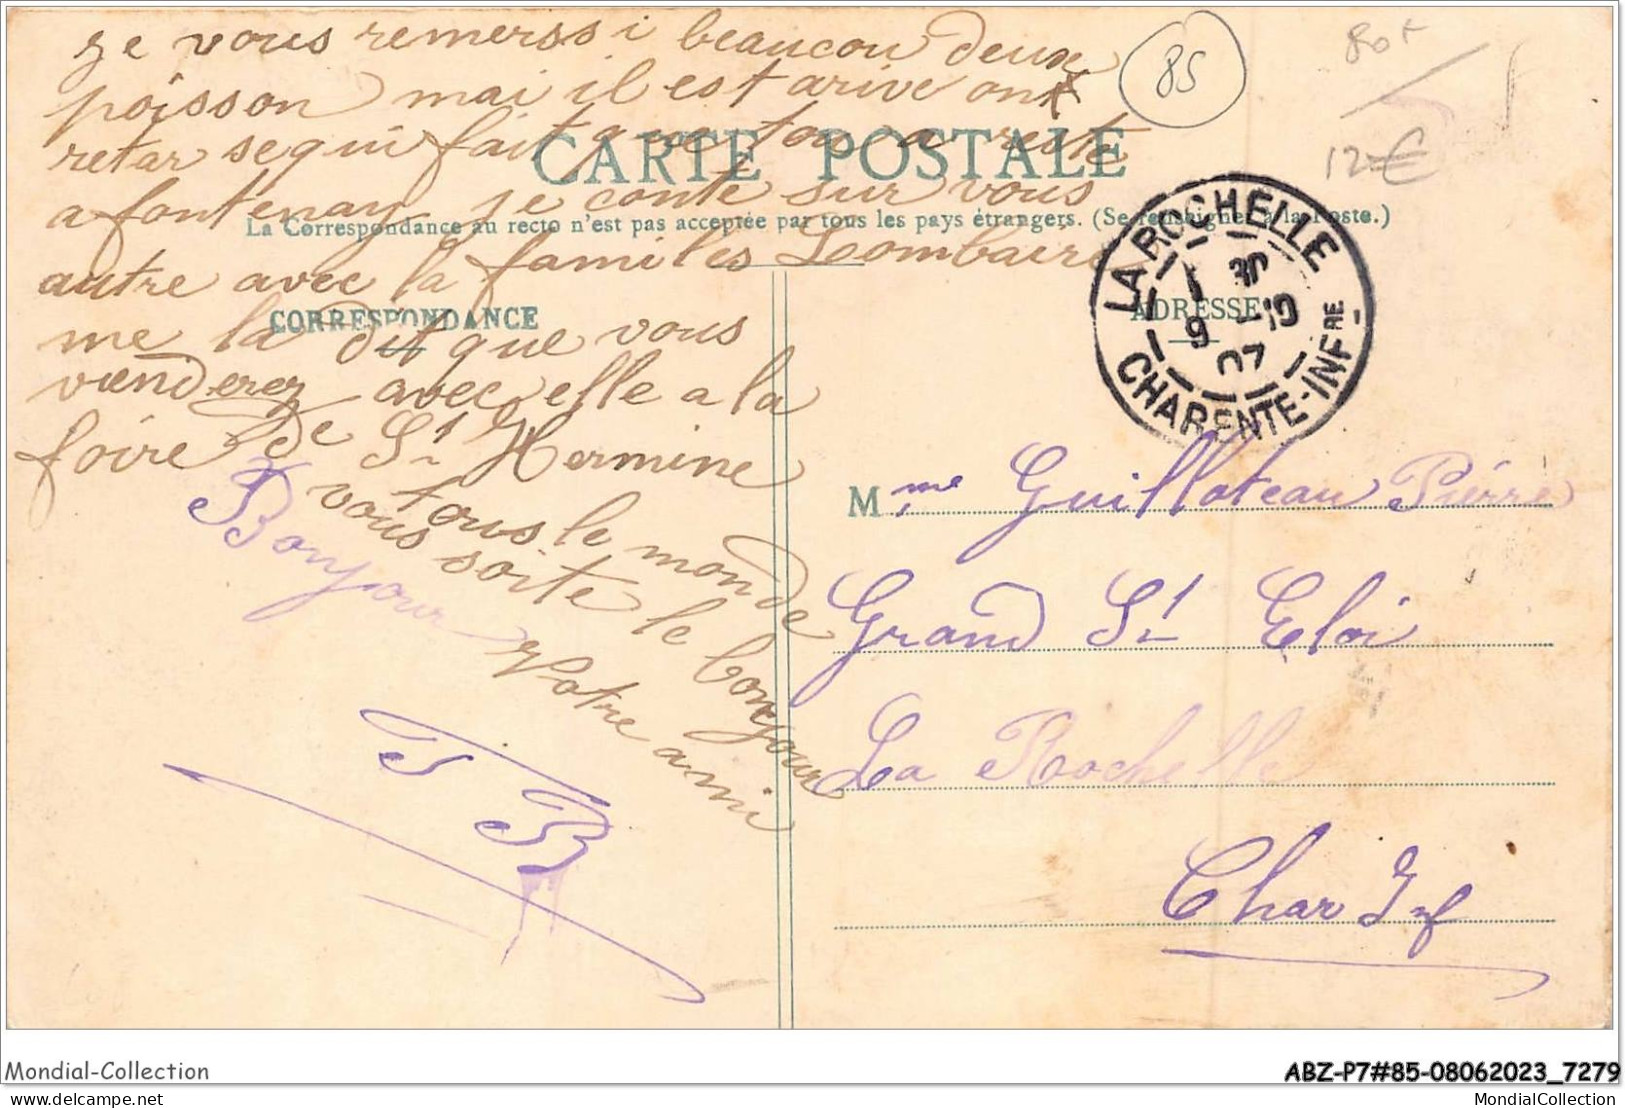 ge vous remerssi beaucou deux
poisson mai il est arive ont
retar se qui fait que tou a reste
CARTE POSTALE
a fontenay je conte sur vous
La Correspondance au recto n'est pas acceptée par tous les pays étrangers. (Se renseigner à la Poste.)
autre avec la familes Lombaire
CORRESPONDANCE
me la dit que vous
vienderez avec elle a la
foire de St Hermine
tous le monde
vous soite le bonjour
Bonjour Votre ami
B
85
80+
12€
LA ROCHELLE
1 30
9 -10
07
CHARENTE-INFRE
ADRESSE
Mme Guilloteau Pierre
Grand St Eloi
La Rochelle
Char Inf
Mondial-Collection
ABZ-P7#85-08062023_7279
the best of ever
MondialCollection